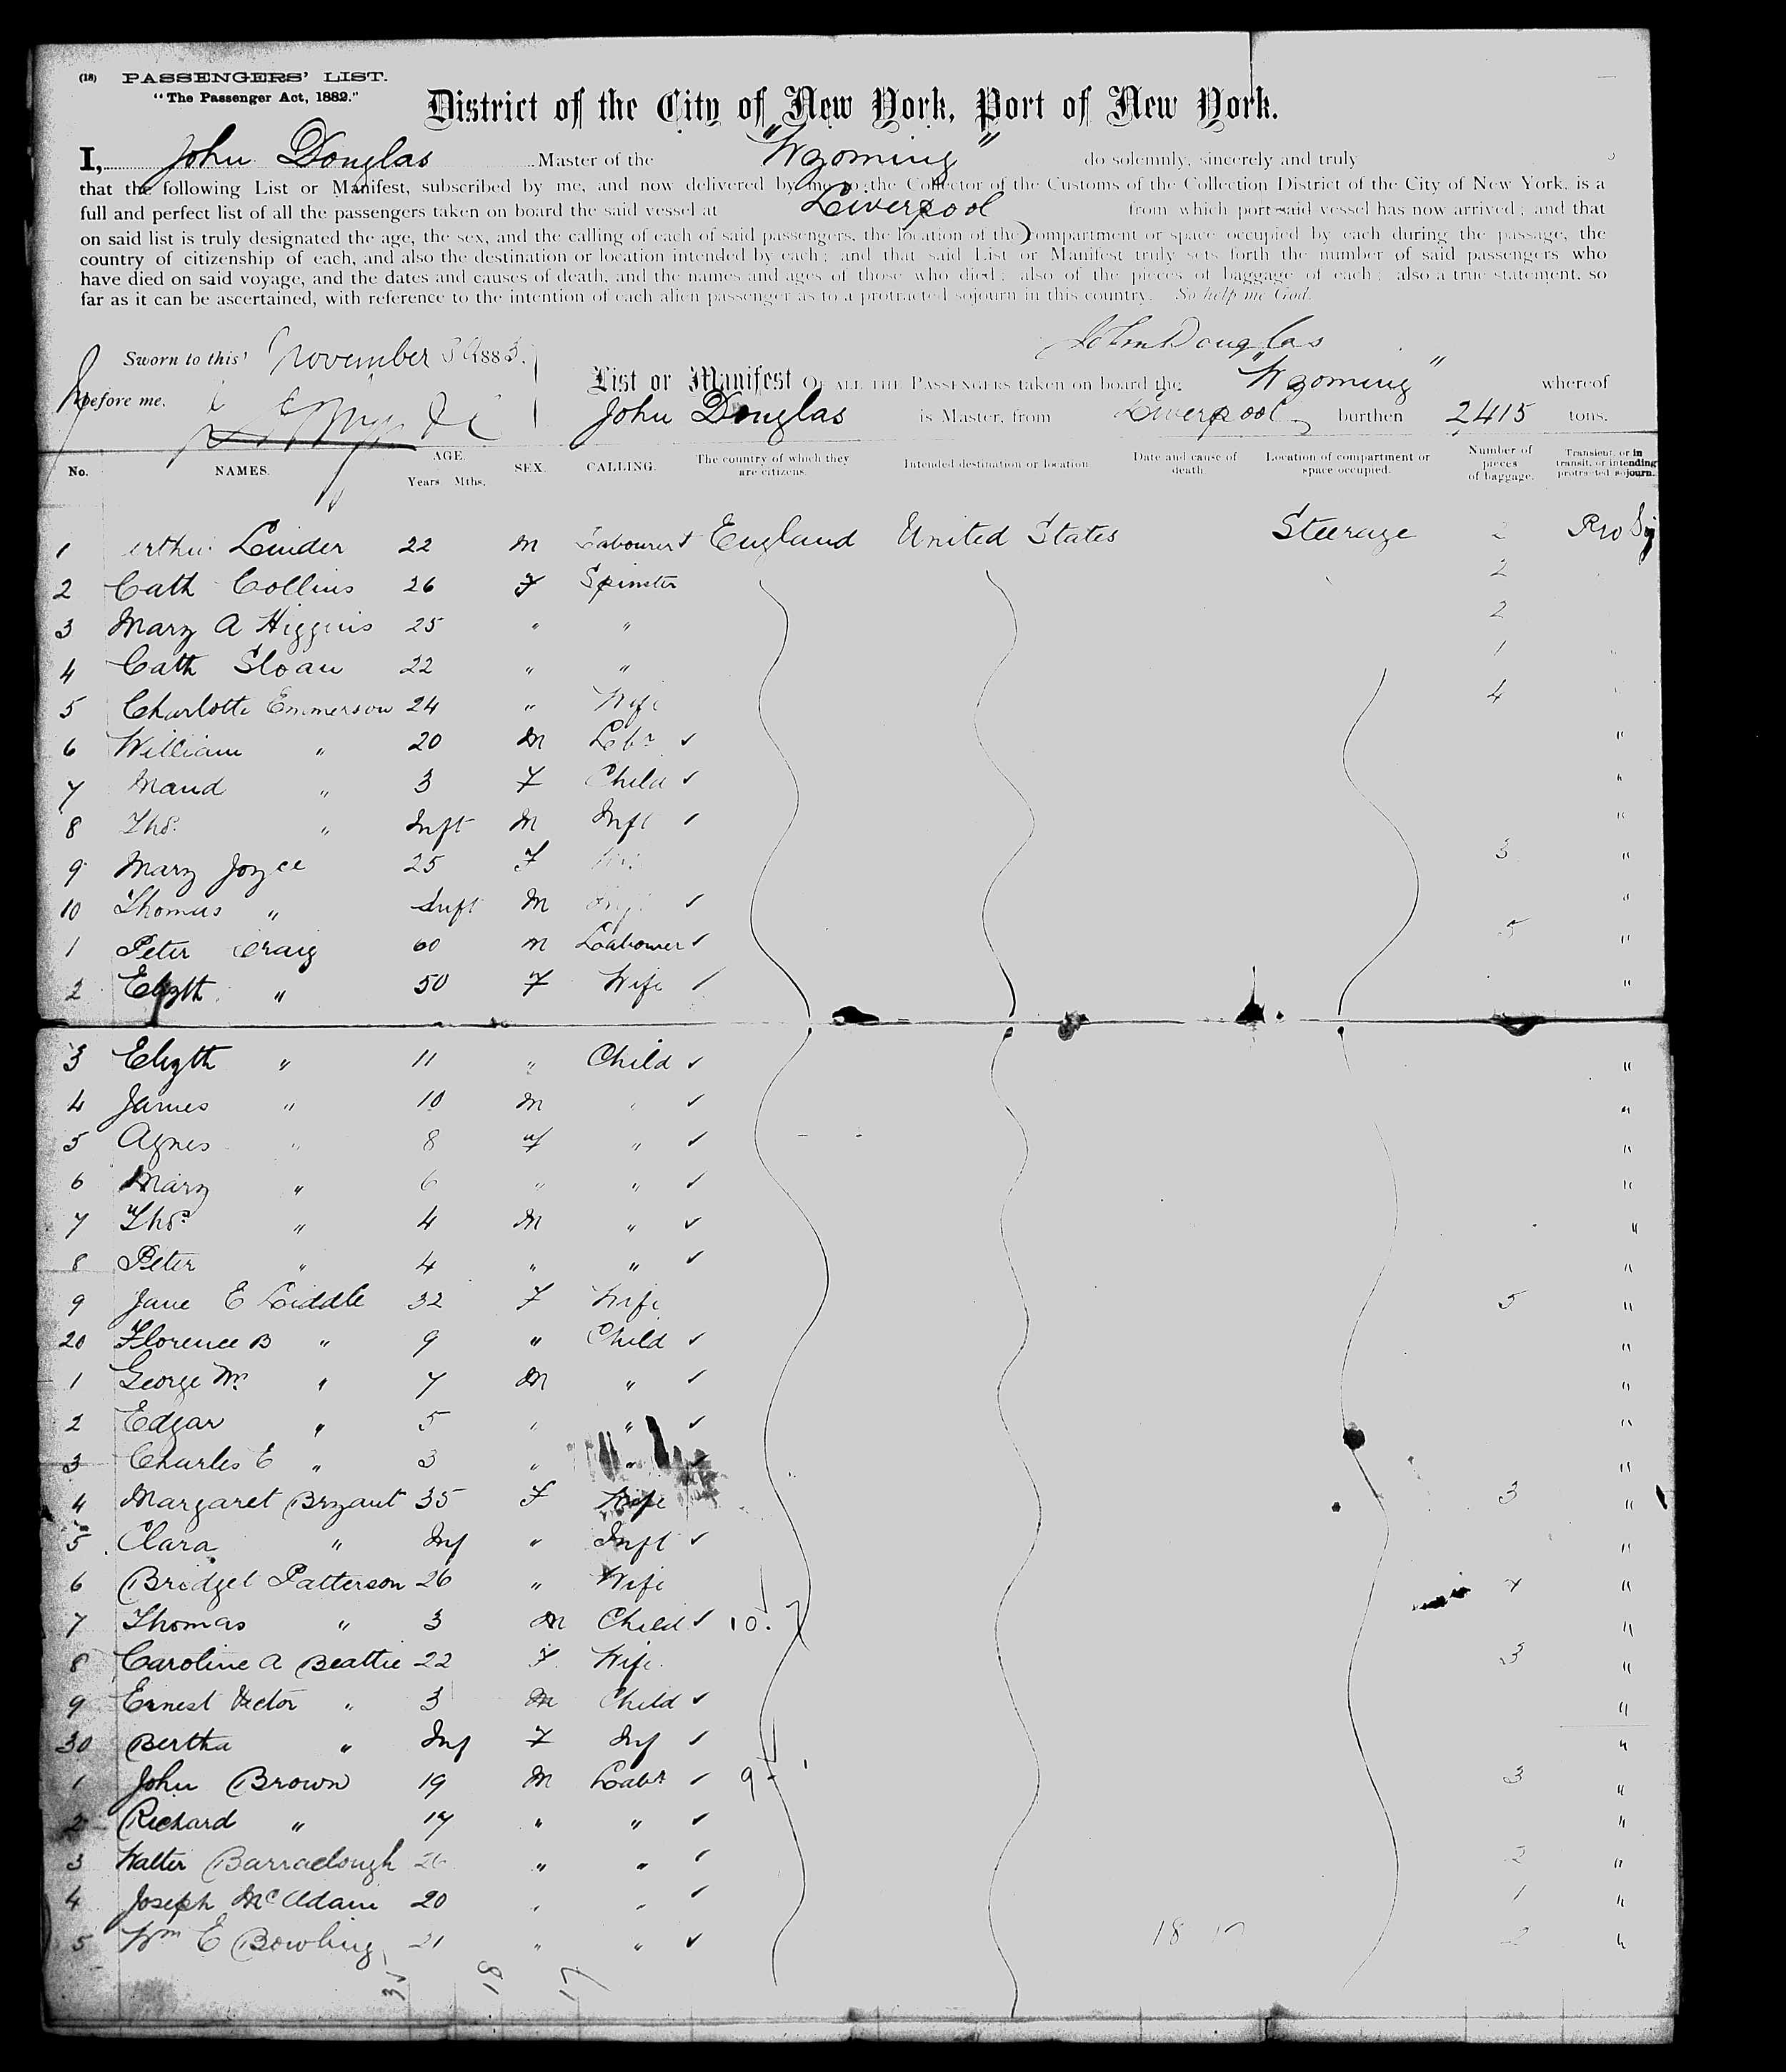 (18) PASSENGERS' LIST.
"The Passenger Act, 1882."
District of the City of New York, Port of New York.
I, John Douglas Master of the "Wyoming" do solemnly, sincerely and truly
that the following List or Manifest, subscribed by me, and now delivered by me to the Collector of the Customs of the Collection District of the City of New York, is a
full and perfect list of all the passengers taken on board the said vessel at Liverpool from which port said vessel has now arrived; and that
on said list is truly designated the age, the sex, and the calling of each of said passengers, the location of the compartment or space occupied by each during the passage, the
country of citizenship of each, and also the destination or location intended by each; and that said List or Manifest truly sets forth the number of said passengers who
have died on said voyage, and the dates and causes of death, and the names and ages of those who died; also of the pieces of baggage of each; also a true statement, so
far as it can be ascertained, with reference to the intention of each alien passenger as to a protracted sojourn in this country. So help me God.
John Douglas
Sworn to this November 1883.
before me.
List or Manifest OF ALL THE PASSENGERS taken on board the "Wyoming" whereof
John Douglas is Master, from Liverpool burthen 2415 tons.
No. NAMES. AGE. Years Mths. SEX. CALLING. The country of which they are citizens. Intended destination or location Date and cause of death Location of compartment or space occupied. Number of pieces of baggage. Transient, or in transit, or intending protracted sojourn.
1 Linder 22 M Labourer England United States Steerage 2 Pro
2 Cath Collins 26 F Spinster 2
3 Mary A Higgins 25 " " 2
4 Cath Sloan 22 " " 1
5 Charlotte Emmerson 24 " Wife 4
6 William " 20 M Labr "
7 Maud " 3 F Child "
8 Thos " Inft M Inft "
9 Mary Joyce 25 F 3 "
10 Thomas " Inft M "
1 Peter Craig 60 M Labourer 5 "
2 Elizth " 50 F Wife "
3 Elizth " 11 " Child "
4 James " 10 M " "
5 Agnes " 8 F " "
6 Mary " 6 " " "
7 Thos " 4 M " "
8 Peter " 4 " " "
9 Jane E Liddle 32 F Wife 5 "
20 Florence B " 9 " Child "
1 George Wm " 7 M " "
2 Edgar " 5 " " "
3 Charles E " 3 " " "
4 Margaret Bryant 35 F Wife 3 "
5 Clara " Inf " Inft "
6 Bridget Patterson 26 " Wife "
7 Thomas " 3 M Child 10. "
8 Caroline A Beattie 22 F Wife 3 "
9 Ernest Victor " 3 M Child "
30 Bertha " Inf F Inf "
1 John Brown 19 M Labr 9 3 "
2 Richard " 17 " " "
3 Walter Barraclough 26 " " 2 "
4 Joseph McAdam 20 " " 1 "
5 Wm E Bowling 21 " " 18 17 2 "
18 17